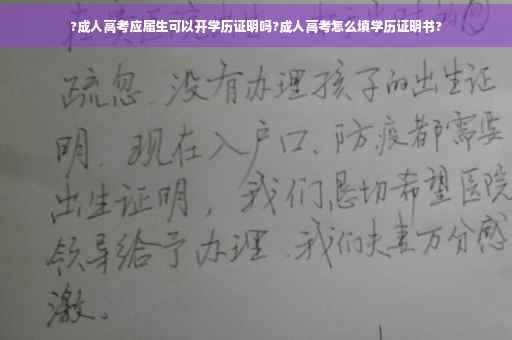 ?成人高考应届生可以开学历证明吗?成人高考怎么填学历证明书?
疏忽.没有办理孩子的出生证
明.现在入户口、防疫都需要
出生证明,我们恳切希望医院
领导给予办理.我们夫妻万分感
激。